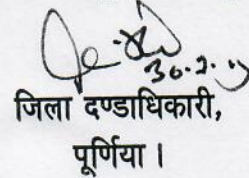 30.2.
जिला दण्डाधिकारी,
पूर्णिया ।